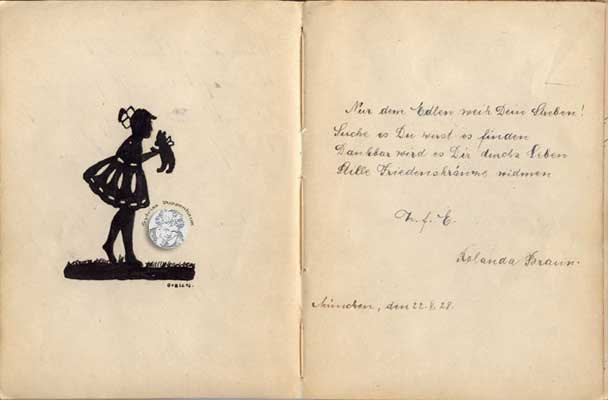 Nur dem Edlen weih Dein Streben!
Suche es Du wirst es finden
Dankbar wird es Dir durchs Leben
Stille Friedenskränze widmen
Z. f. E.
Rolanda Braun.
München, den